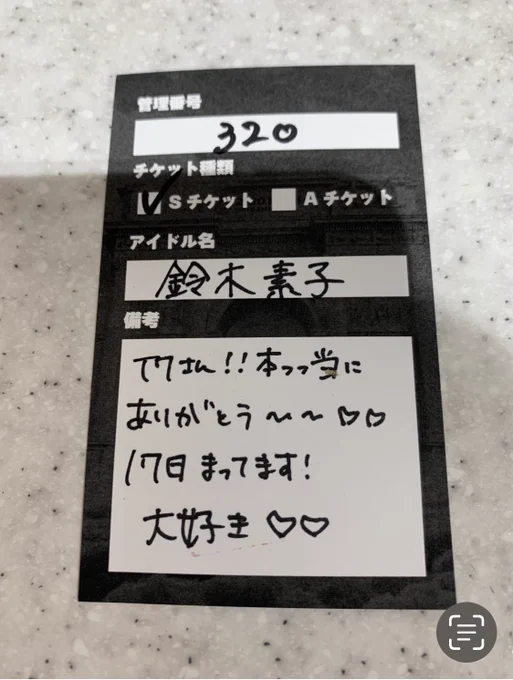 管理番号
320
チケット種類
Sチケット Aチケット
アイドル名
鈴木素子
備考
てワさん!!本っっ当に
ありがとう~~♡♡
17日まってます!
大好き♡♡